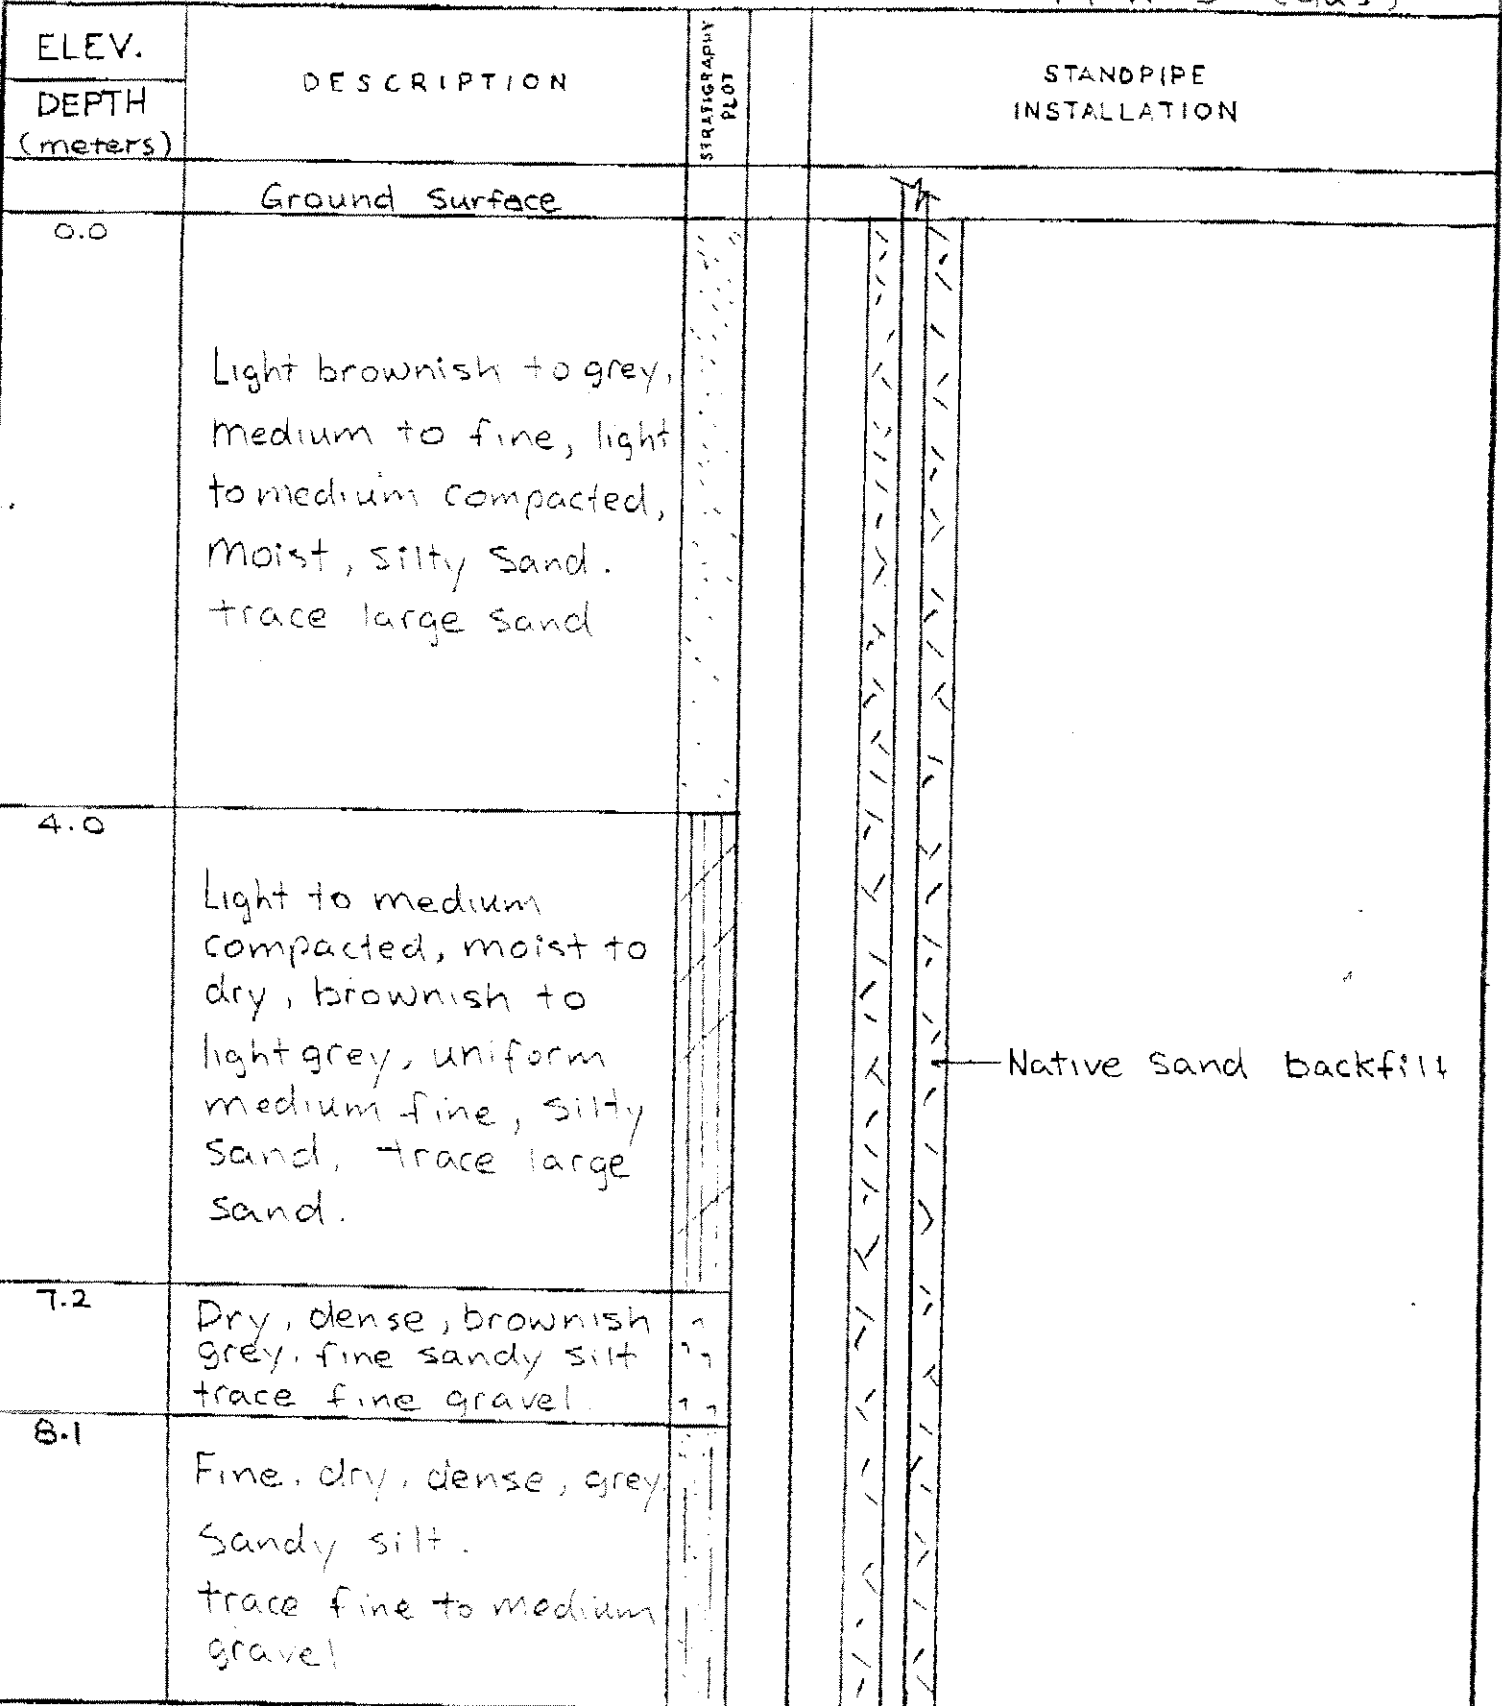 ELEV.
DEPTH
(meters)
DESCRIPTION
STRATIGRAPHY
PLOT
STANDPIPE
INSTALLATION
Ground Surface
0.0
Light brownish to grey,
medium to fine, light
to medium compacted,
Moist, silty Sand.
trace large sand
4.0
Light to medium
compacted, moist to
dry, brownish to
light grey, uniform
medium fine, silty
sand, trace large
sand.
Native sand backfill
7.2
Dry, dense, brownish
grey, fine sandy silt
trace fine gravel.
8.1
Fine, dry, dense, grey,
Sandy silt.
trace fine to medium
gravel